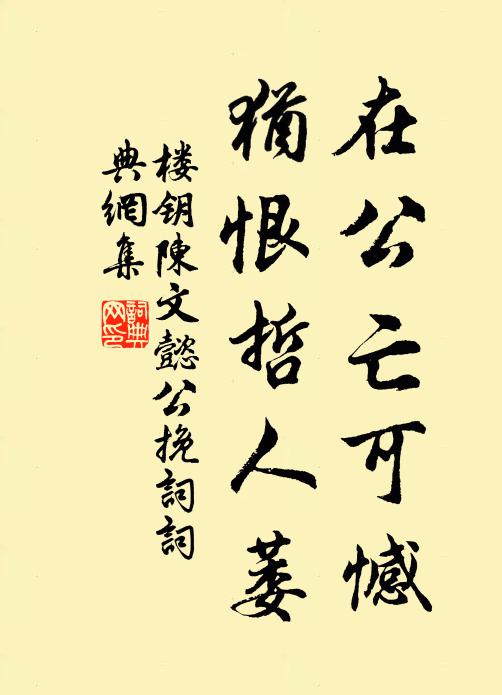 在公亡可憾
猶恨哲人萎
楼钥陳文懿公挽詞詞
典網集
詞典網印